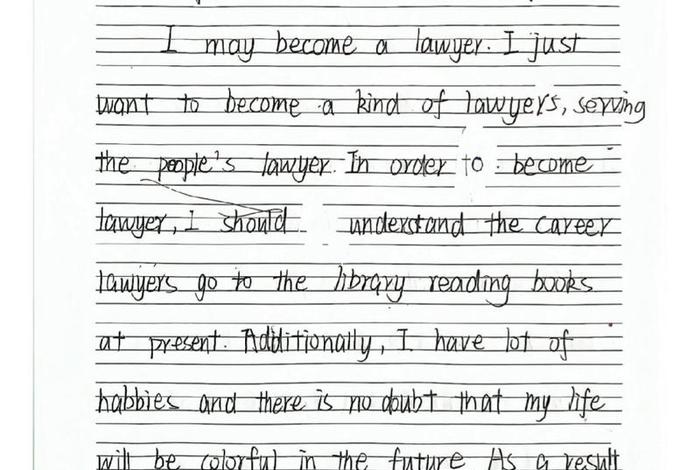 I may become a lawyer. I just
want to become a kind of lawyers, serving
the people's lawyer. In order to become
lawyer, I should understand the career
lawyers go to the library reading books
at present. Additionally, I have lot of
habbies and there is no doubt that my life
will be colorful in the future As a result